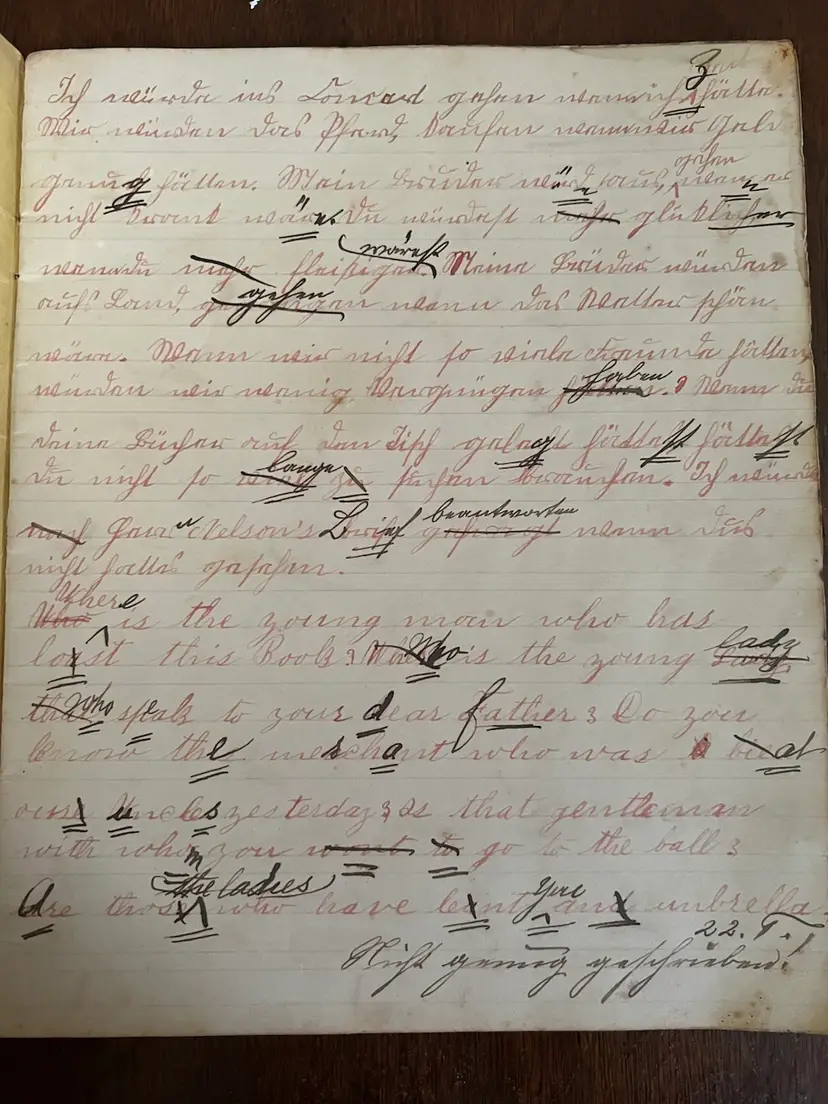 Ich würde ins Concert gehen wenn ich Zeit hätte.
Wir würden das Pferd, kaufen wenn wir Geld
genug hätten. Mein Bruder würde aus, gehen wenn er
nicht krank wäre. Du würdest mehr glücklicher
wenn du mehr fleißiger wärest. Meine Brüder würden
aufs Land, gehen wenn das Wetter schön
wäre. Wenn wir nicht so viele Freunde hätten,
würden wir wenig Vergnügen haben. Wenn du
deine Bücher auf den Tisch gelegt hättest hättest
du nicht so lange zu suchen brauchen. Ich würde
Herrn Nelson's Brief beantworten wenn du's
nicht hattes gesehen.
Who Where is the young man who has
lost this Book? Who is the young Lady
that who speak to your dear Father? Do you
know the merchant who was at
our uncles yesterday? Is that gentleman
with whom you want to go to the ball?
Are those the ladies who have lent you and umbrella.
22. T. 1
Nicht genug geschrieben!